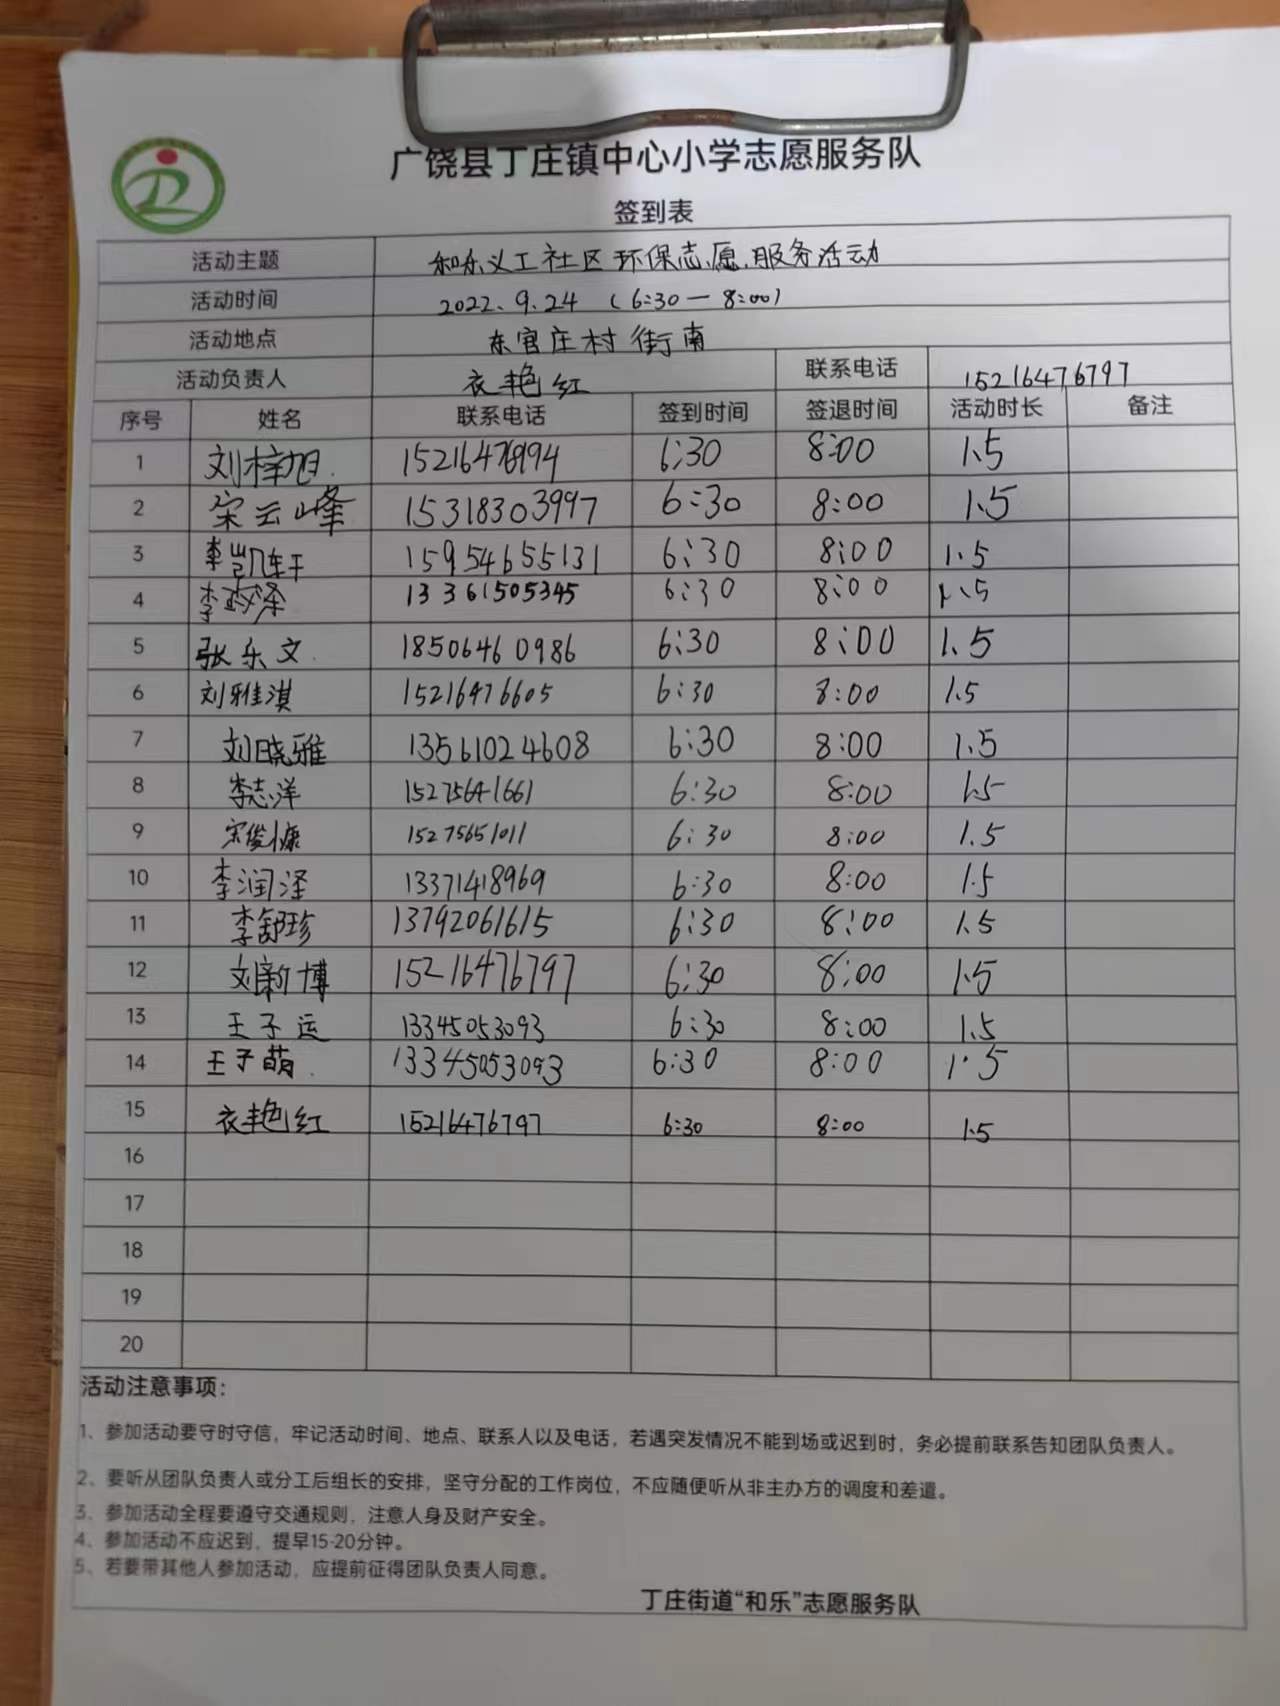 广饶县丁庄镇中心小学志愿服务队
签到表
活动主题 和乐义工社区环保志愿服务活动
活动时间 2022.9.24 (6:30—8:00)
活动地点 东官庄村街南
活动负责人 衣艳红 联系电话 15216476797
序号 姓名 联系电话 签到时间 签退时间 活动时长 备注
1 刘梓旭 6:30 8:00 1.5
2 宋云峰 15318303997 6:30 8:00 1.5
3 李凯轩 15954655131 6:30 8:00 1.5
4 李 13361505345 6:30 8:00 1.5
5 张乐文 18506460986 6:30 8:00 1.5
6 刘雅淇 15216476605 6:30 8:00 1.5
7 刘晓雅 13561024608 6:30 8:00 1.5
8 李志洋 15275641661 6:30 8:00 1.5
9 宋俊慷 15275651011 6:30 8:00 1.5
10 李润泽 13371418969 6:30 8:00 1.5
11 李舒珍 13792061615 6:30 8:00 1.5
12 刘新博 15216476797 6:30 8:00 1.5
13 王子运 13345053093 6:30 8:00 1.5
14 王子萌 13345053093 6:30 8:00 1.5
15 衣艳红 15216476797 6:30 8:00 1.5
16
17
18
19
20
活动注意事项：
1、参加活动要守时守信，牢记活动时间、地点、联系人以及电话，若遇突发情况不能到场或迟到时，务必提前联系告知团队负责人。
2、要听从团队负责人或分工后组长的安排，坚守分配的工作岗位，不应随便听从非主办方的调度和差遣。
3、参加活动全程要遵守交通规则，注意人身及财产安全。
4、参加活动不应迟到，提早15-20分钟。
5、若要带其他人参加活动，应提前征得团队负责人同意。
丁庄街道“和乐”志愿服务队